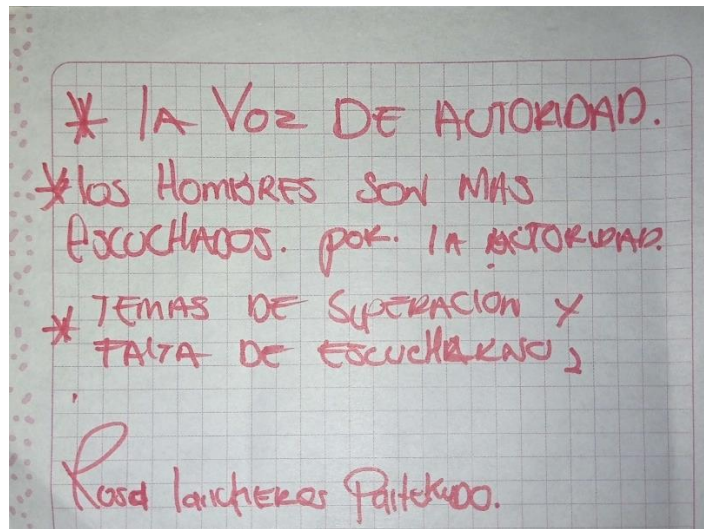 * lA VOz DE AUTORIDAD.
* los HOMBRES SON MAS
ESCUCHADOS. POR. lA AUTORIDAD.
* TEMAS DE SUPERACION Y
FALTA DE ESCUCHARNOS
Rosa